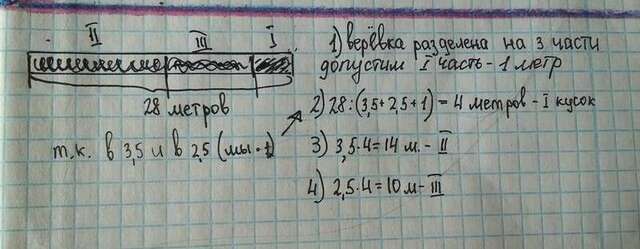 II III I
28 метров
т.к. в 3,5 и в 2,5 (мы
1) верёвка разделена на 3 части
допустим I часть - 1 метр
2) 28:(3,5+2,5+1) = 4 метров - I кусок
3) 3,5·4=14 м. - II
4) 2,5·4=10 м - III